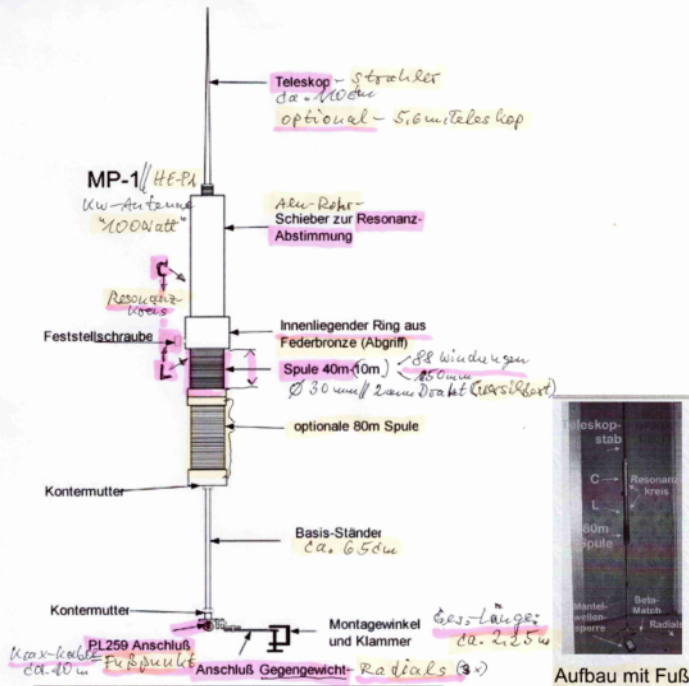 Teleskop - Strahler
ca. 110cm
optional - 5,6m Teleskop
MP-1 // HE-P1
KW-Antenne
"100Watt"
Alu-Rohr-
Schieber zur Resonanz-
Abstimmung
C
Resonanz-
kreis
Feststellschraube
L
Innenliegender Ring aus
Federbronze (Abgriff)
Spule 40m-(10m)
88 Windungen
150mm
Ø 30mm // 2mm Draht (versilbert)
optionale 80m Spule
Kontermutter
Basis-Ständer
ca. 65cm
Kontermutter
Montagewinkel
und Klammer
Ges.-Länge:
ca. 2,25m
PL259 Anschluß
Koax-Kabel
ca. 10m
Fußpunkt
Anschluß Gegengewicht - Radials
Teleskop-
stab
C
Resonanz
kreis
L
80m
Spule
Mantel-
wellen-
sperre
Beta-
Match
Radials
Aufbau mit Fuß